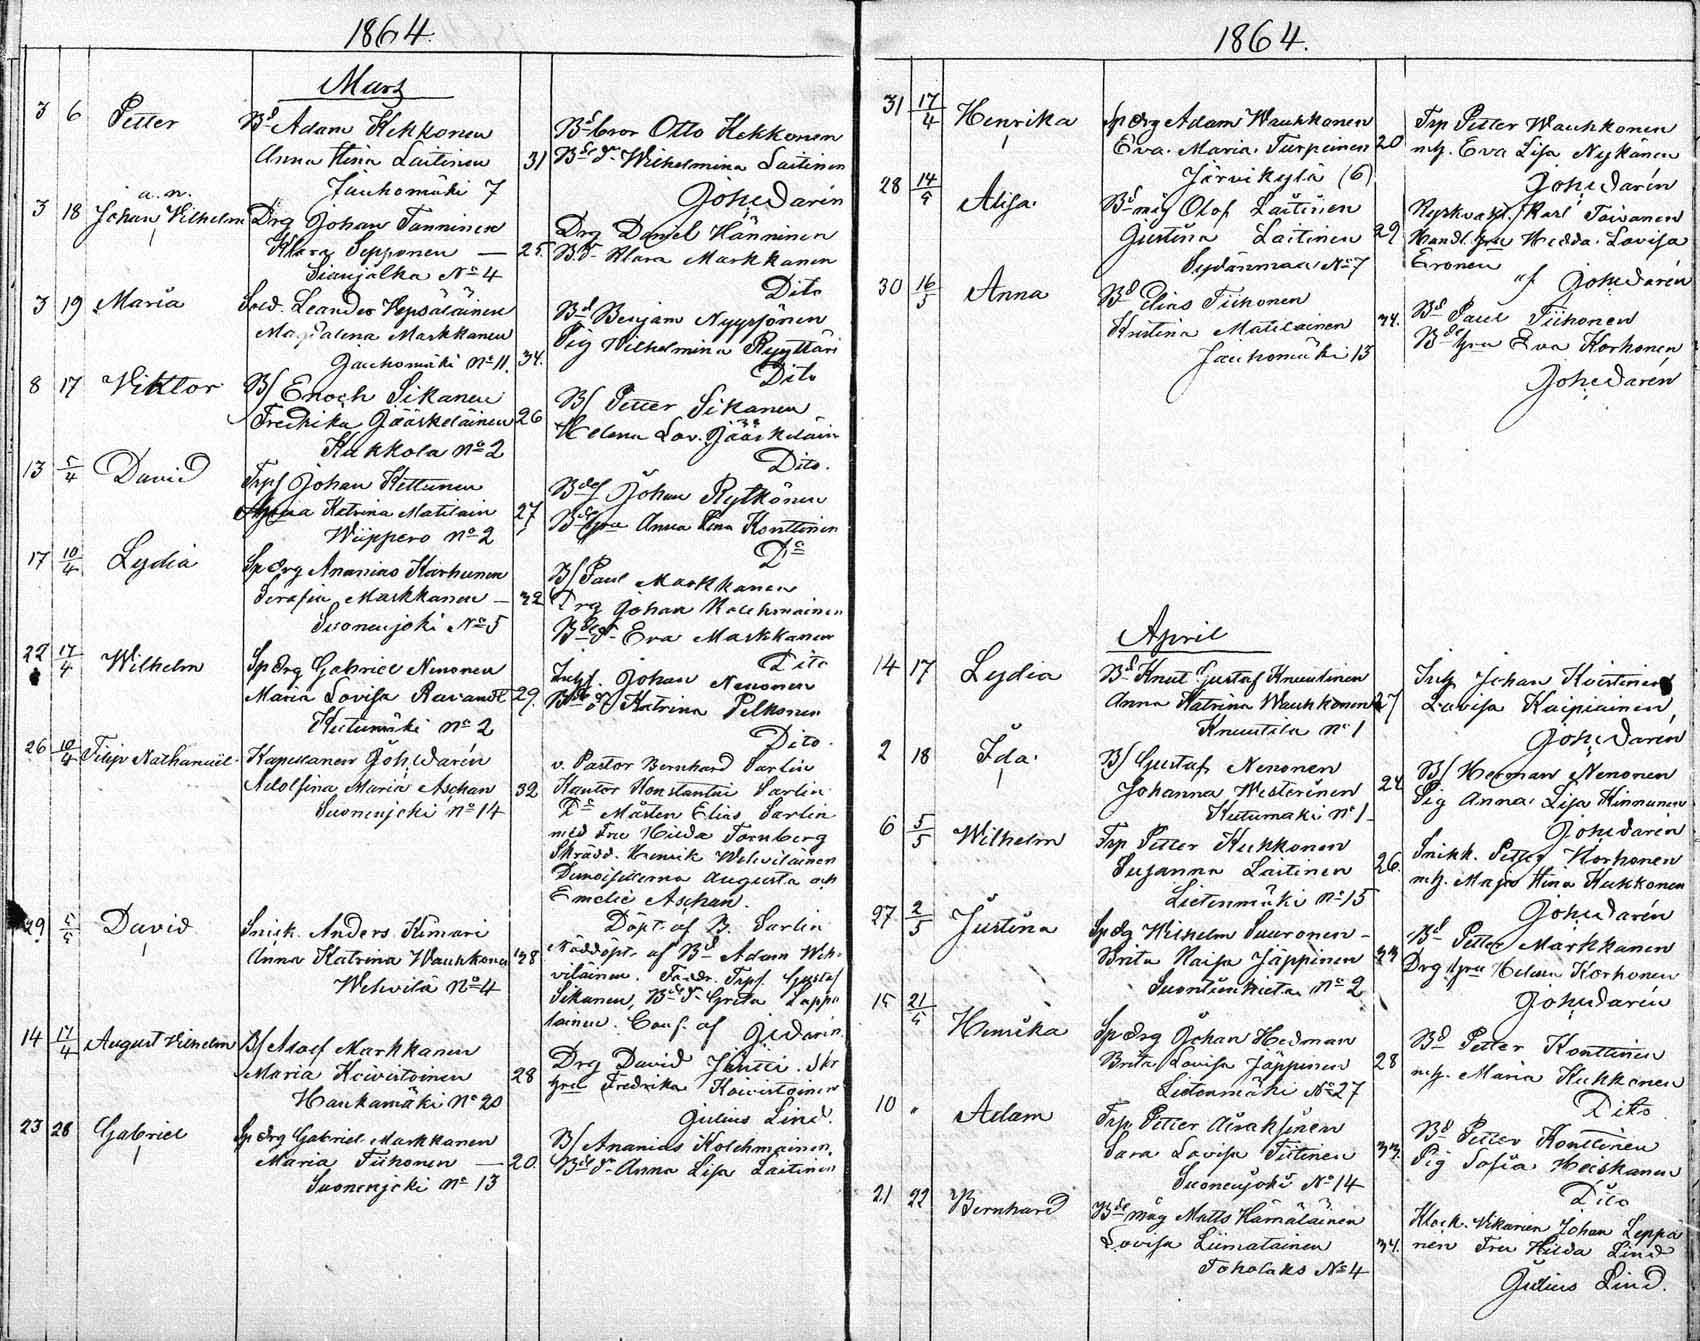 1864.
Mars
3 6 Petter Bd Adam Kekkonen
Anna Stina Laitinen 31
Jauhomäki 7
Bd bror Otto Kekkonen
Bde dr Wilhelmina Laitinen
Joh. Darin
3 18 Johan Wilhelm Drg Johan Tanninen
a. n.
Klara Sepponen — 25.
Sianjalka No 4
Drg Daniel Hänninen
Bd dr Klara Markkanen
Dito
3 19 Maria Sold. Leander Vepsäläinen
Magdalena Markkanen
Jauhomäki No 11. 34.
Bd Benjam Nyyssönen
Pig Wilhelmina Ryyttäri
Dito
8 17 Viktor B/ Enoch Sikanen
Fredrika Jääskeläinen 26
Kukkola No 2
B/ Petter Sikanen
Helena Lov. Jääskeläin
Dito.
13 5/4 David Trp/ Johan Kettunen
Katrina Matilain 27
Wiippero No 2
Bde/ Johan Rytkönen
Bde hru Anna Lena Konttinen
Do
17 10/4 Lydia Sp drg Ananias Karhunen
Serafia Markkanen — 32
Suonenjoki No 5
B/ Paul Markkanen
Drg Johan Kolehmainen
Bde dr Eva Markkanen
Dito
22 17/4 Wilhelm Sp drg Gabriel Nenonen
Maria Lovisa Ravandt 29.
Kutumäki No 2
Inhs. Johan Nenonen
Bde dr Katrina Pelkonen
Dito.
26 10/4 Filip Nathanaël Kapellanen Joh. Darin
Adolfina Maria Aschan 32
Suonenjoki No 14
v. Pastor Bernhard Sarlin
Kantor Konstantin Sarlin
Do Mårten Elias Sarlin
med Fru Hilda Tornberg
Skrädd. Henrik Wehviläinen
Demoisellerna Augusta och
Emelie Aschan.
Döpt. af B. Sarlin
29 5/5 David Snick. Anders Kimari
Anna Katrina Wauhkonen 38
Wehvilä No 4
Nöddöpt. af Bd Adam Weh-
viläinen. Faddr. Trp/ Gustaf
Sikanen, Bde dr Greta Lappa
lainen. Conf. af J. Darin.
14 17/4 August Wilhelm B/ Adolf Markkanen
Maria Koivistoinen 28
Haukamäki No 20
Drg David Jäntti. Skr
hru Fredrika Koivistoinen
Julius Lind.
23 28 Gabriel Sp drg Gabriel Markkanen
Maria Tiihonen — 20.
Suonenjoki No 13
B/ Ananias Kolehmainen
Bde dr Anna Lisa Laitinen
1864.
31 17/4 Henrika Sp drg Adam Wauhkonen
Eva Maria Turpeinen 20
Järvikylä (6)
Trp Petter Wauhkonen
m h. Eva Lisa Nykänen
Joh. Darin
28 14/5 Alisa Bd måg Olof Laitinen
Gustina Laitinen 29
Sydänmaa No 7
Karl Toivanen
Handl. hru Hedda Lovisa
Eronen
af Joh. Darin
30 16/5 Anna Bd Elias Tiihonen
Kristina Matilainen 34.
Jauhomäki 13
Bd Paul Tiihonen
Bde hru Eva Korhonen
Joh. Darin
April
14 17 Lydia Bd Knut Gustaf Knuutinen
Anna Katrina Wauhkonen 27
Knuutila No 1
Inh Johan Koistinen
Lovisa Karpiainen,
Joh. Darin
2 18 Ida B/ Gustaf Nenonen
Johanna Westerinen 24
Kutumäki No 1
B/ Herman Nenonen
Pig Anna Lisa Kinnunen
Joh. Darin
6 5/5 Wilhelm Trp Petter Kukkonen
Susanna Laitinen 26
Lietenmäki No 15
Snikk. Petter Korhonen
m h. Maja Stina Kukkonen
Joh. Darin
27 2/5 Justina Sp drg Wilhelm Suuronen
Brita Kaisa Jäppinen 23
Suontienkieta No 2
Bd Petter Markkanen
Drg hru Helena Korhonen
Joh. Darin
15 21/5 Henrika Sp drg Johan Hedman
Brita Lovisa Jäppinen 28
Lietenmäki No 27
Bd Petter Konttinen
m h. Maria Kukkonen
Dito
10 " Adam Trp. Petter Airaksinen
Sara Lovisa Tiitinen 33.
Suonenjoki No 14
Bd Petter Konttinen
Pig Sofia Heiskanen
Dito
21 22 Bernhard Bde måg Matts Hämäläinen
Lovisa Liimatainen 34.
Toholaks No 4
Klock. Vikarien Johan Leppä
nen Fru Hilda Lind
Julius Lind.